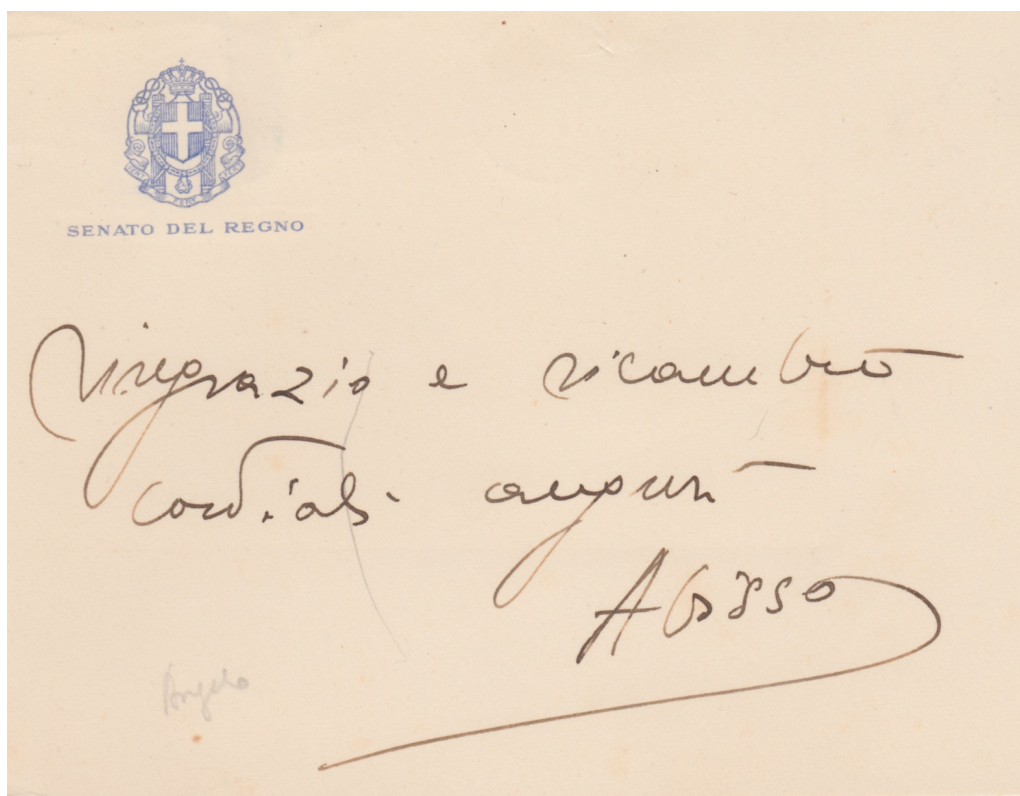 SENATO DEL REGNO
ringrazio e ricambio
cordiali auguri
Abisso
Angelo